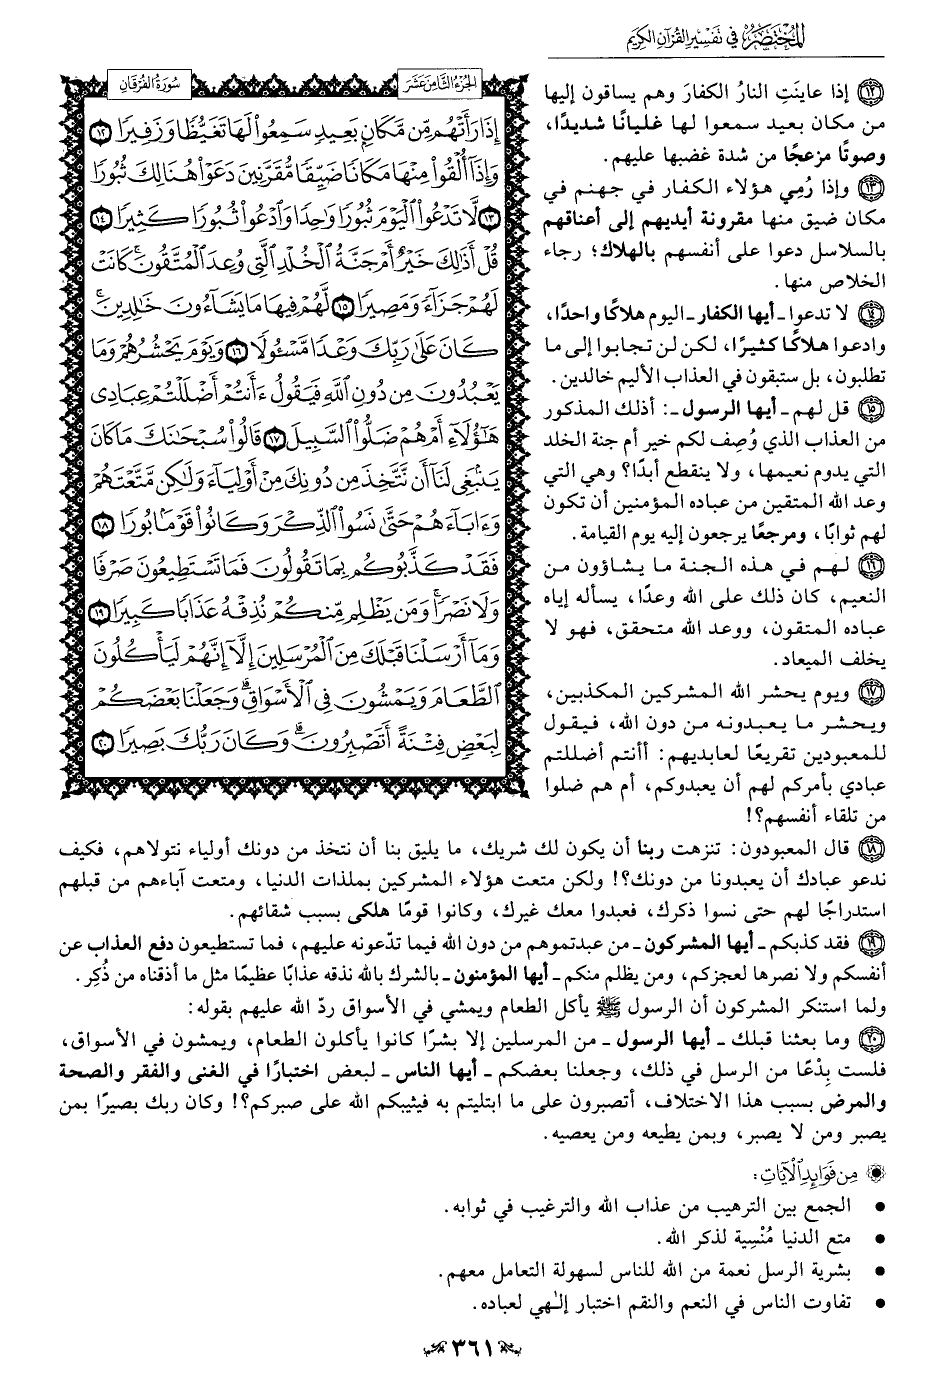 المختصر في تفسير القرآن الكريم
الجزء الثامن عشر
سورة الفرقان
إِذَا رَأَتْهُم مِّن مَّكَانٍ بَعِيدٍ سَمِعُوا۟ لَهَا تَغَيُّظًا وَزَفِيرًا ١٢
وَإِذَآ أُلْقُوا۟ مِنْهَا مَكَانًا ضَيِّقًا مُّقَرَّنِينَ دَعَوْا۟ هُنَالِكَ ثُبُورًا
١٣ لَّا تَدْعُوا۟ ٱلْيَوْمَ ثُبُورًا وَٰحِدًا وَٱدْعُوا۟ ثُبُورًا كَثِيرًا ١٤
قُلْ أَذَٰلِكَ خَيْرٌ أَمْ جَنَّةُ ٱلْخُلْدِ ٱلَّتِى وُعِدَ ٱلْمُتَّقُونَ ۚ كَانَتْ
لَهُمْ جَزَآءً وَمَصِيرًا ١٥ لَّهُمْ فِيهَا مَا يَشَآءُونَ خَٰلِدِينَ ۚ
كَانَ عَلَىٰ رَبِّكَ وَعْدًا مَّسْـُٔولًا ١٦ وَيَوْمَ يَحْشُرُهُمْ وَمَا
يَعْبُدُونَ مِن دُونِ ٱللَّهِ فَيَقُولُ ءَأَنتُمْ أَضْلَلْتُمْ عِبَادِى
هَٰٓؤُلَآءِ أَمْ هُمْ ضَلُّوا۟ ٱلسَّبِيلَ ١٧ قَالُوا۟ سُبْحَٰنَكَ مَا كَانَ
يَنۢبَغِى لَنَآ أَن نَّتَّخِذَ مِن دُونِكَ مِنْ أَوْلِيَآءَ وَلَٰكِن مَّتَّعْتَهُمْ
وَءَابَآءَهُمْ حَتَّىٰ نَسُوا۟ ٱلذِّكْرَ وَكَانُوا۟ قَوْمًۢا بُورًا ١٨
فَقَدْ كَذَّبُوكُم بِمَا تَقُولُونَ فَمَا تَسْتَطِيعُونَ صَرْفًا
وَلَا نَصْرًا ۚ وَمَن يَظْلِم مِّنكُمْ نُذِقْهُ عَذَابًا كَبِيرًا ١٩
وَمَآ أَرْسَلْنَا قَبْلَكَ مِنَ ٱلْمُرْسَلِينَ إِلَّآ إِنَّهُمْ لَيَأْكُلُونَ
ٱلطَّعَامَ وَيَمْشُونَ فِى ٱلْأَسْوَاقِ ۗ وَجَعَلْنَا بَعْضَكُمْ
لِبَعْضٍ فِتْنَةً أَتَصْبِرُونَ ۗ وَكَانَ رَبُّكَ بَصِيرًا ٢٠
١٢ إذا عاينَتِ النارُ الكفارَ وهم يساقون إليها
من مكان بعيد سمعوا لها غليانًا شديدًا،
وصوتًا مزعجًا من شدة غضبها عليهم.
١٣ وإذا رُمِي هؤلاء الكفار في جهنم في
مكان ضيق منها مقرونة أيديهم إلى أعناقهم
بالسلاسل دعوا على أنفسهم بالهلاك؛ رجاء
الخلاص منها.
١٤ لا تدعوا - أيها الكفار - اليوم هلاكًا واحدًا،
وادعوا هلاكًا كثيرًا، لكن لن تجابوا إلى ما
تطلبون، بل ستبقون في العذاب الأليم خالدين.
١٥ قل لهم - أيها الرسول -: أذلك المذكور
من العذاب الذي وُصِف لكم خير أم جنة الخلد
التي يدوم نعيمها، ولا ينقطع أبدًا؟ وهي التي
وعد الله المتقين من عباده المؤمنين أن تكون
لهم ثوابًا، ومرجعًا يرجعون إليه يوم القيامة.
١٦ لهم في هذه الجنة ما يشاؤون من
النعيم، كان ذلك على الله وعدًا، يسأله إياه
عباده المتقون، ووعد الله متحقق، فهو لا
يخلف الميعاد.
١٧ ويوم يحشر الله المشركين المكذبين،
ويحشر ما يعبدونه من دون الله، فيقول
للمعبودين تقريعًا لعابديهم: أأنتم أضللتم
عبادي بأمركم لهم أن يعبدوكم، أم هم ضلوا
من تلقاء أنفسهم؟!
١٨ قال المعبودون: تنزهت ربنا أن يكون لك شريك، ما يليق بنا أن نتخذ من دونك أولياء نتولاهم، فكيف
ندعو عبادك أن يعبدونا من دونك؟! ولكن متعت هؤلاء المشركين بملذات الدنيا، ومتعت آباءهم من قبلهم
استدراجًا لهم حتى نسوا ذكرك، فعبدوا معك غيرك، وكانوا قومًا هلكى بسبب شقائهم.
١٩ فقد كذبكم - أيها المشركون - من عبدتموهم من دون الله فيما تدّعونه عليهم، فما تستطيعون دفع العذاب عن
أنفسكم ولا نصرها لعجزكم، ومن يظلم منكم - أيها المؤمنون - بالشرك بالله نذقه عذابًا عظيمًا مثل ما أذقناه من ذُكِر.
ولما استنكر المشركون أن الرسول ﷺ يأكل الطعام ويمشي في الأسواق ردّ الله عليهم بقوله:
٢٠ وما بعثنا قبلك - أيها الرسول - من المرسلين إلا بشرًا كانوا يأكلون الطعام، ويمشون في الأسواق،
فلست بِدْعًا من الرسل في ذلك، وجعلنا بعضكم - أيها الناس - لبعض اختبارًا في الغنى والفقر والصحة
والمرض بسبب هذا الاختلاف، أتصبرون على ما ابتليتم به فيثيبكم الله على صبركم؟! وكان ربك بصيرًا بمن
يصبر ومن لا يصبر، وبمن يطيعه ومن يعصيه.
من فوائد الآيات:
• الجمع بين الترهيب من عذاب الله والترغيب في ثوابه.
• متع الدنيا مُنْسِية لذكر الله.
• بشرية الرسل نعمة من الله للناس لسهولة التعامل معهم.
• تفاوت الناس في النعم والنقم اختبار إلٰهي لعباده.
٣٦١